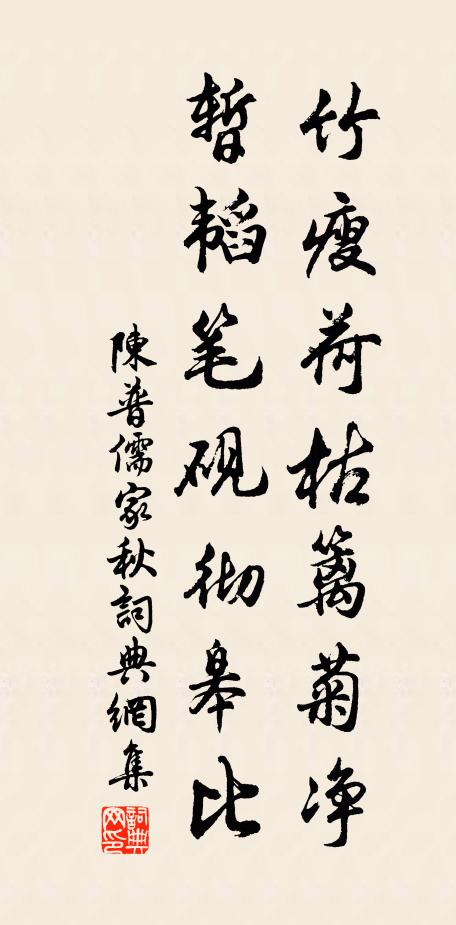 竹瘦荷枯篱菊净
暂韬笔砚彻皋比
陳普儒家秋詞典網集
詞典网印